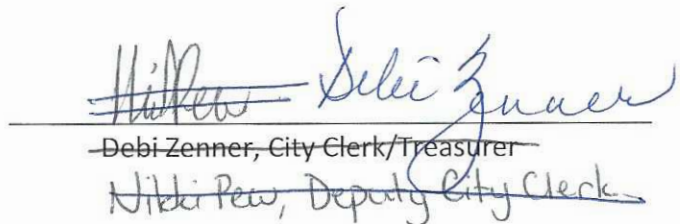 Nikki Pew Debi Zenner
Debi Zenner, City Clerk/Treasurer
Nikki Pew, Deputy City Clerk